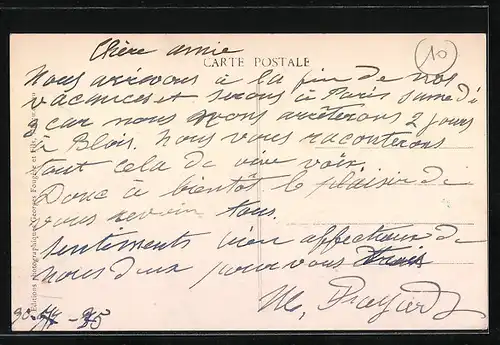 Chère amie
CARTE POSTALE
10
Nous arrivons à la fin de nos
vacances et serons à Paris samedi
car nous nous arrêterons 2 jours
à Blois. Nous vous raconterons
tout cela de vive voix.
Donc a bientôt le plaisir de
vous revoir tous.
Sentiments bien affectueux de
nous deux pour vous trois
Editions photographiques Georges Fougère et Fils,